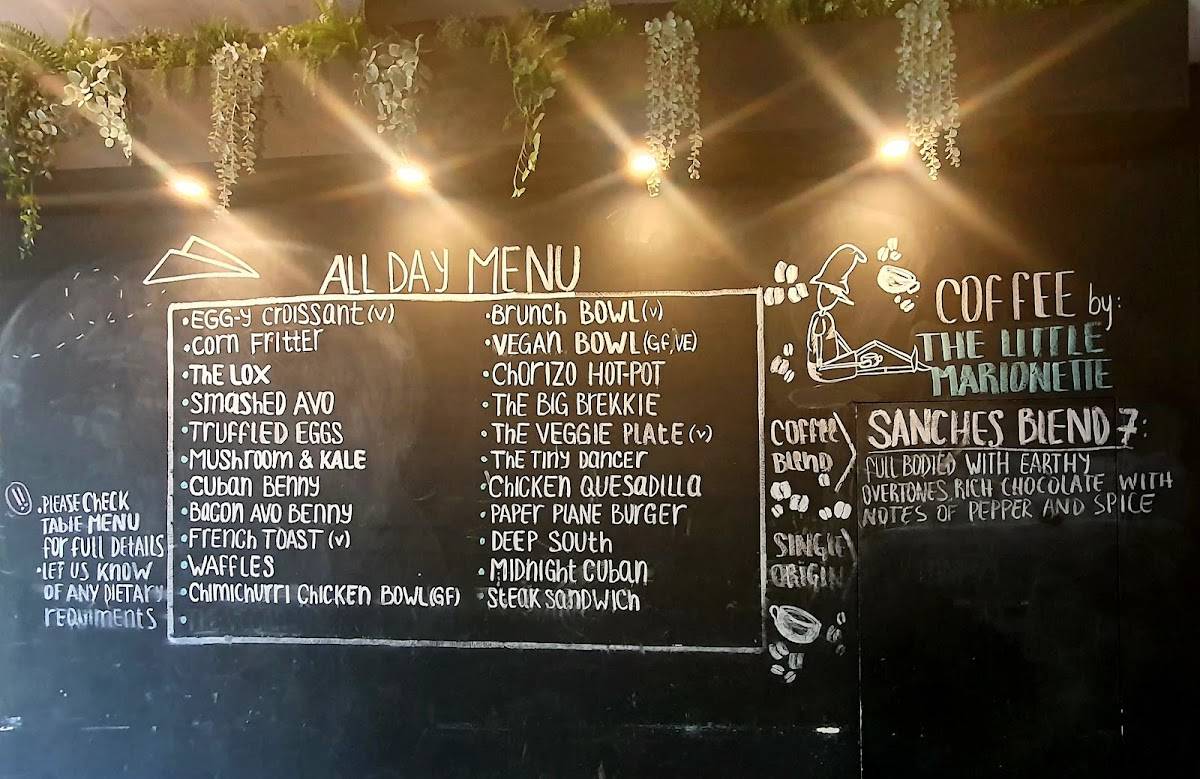 ALL DAY MENU
•EGG-Y CROISSANT (V)
•CORN FRITTER
•THE LOX
•SMASHED AVO
•TRUFFLED EGGS
•MUSHROOM & KALE
•CUBAN BENNY
•BACON AVO BENNY
•FRENCH TOAST (V)
•WAFFLES
•CHIMICHURRI CHICKEN BOWL (GF)
•
•BRUNCH BOWL (V)
•VEGAN BOWL (GF,VE)
•CHORIZO HOT-POT
•THE BIG BREKKIE
•THE VEGGIE PLATE (V)
•THE TINY DANCER
•CHICKEN QUESADILLA
•PAPER PLANE BURGER
•DEEP SOUTH
•MIDNIGHT CUBAN
•STEAK SANDWICH
!!
•PLEASE CHECK
TABLE MENU
FOR FULL DETAILS
•LET US KNOW
OF ANY DIETARY
REQUIMENTS
COFFEE by:
THE LITTLE
MARIONETTE
COFFEE
BLEND
SINGLE
ORIGIN
SANCHES BLEND 7:
FULL BODIED WITH EARTHY
OVERTONES, RICH CHOCOLATE WITH
NOTES OF PEPPER AND SPICE